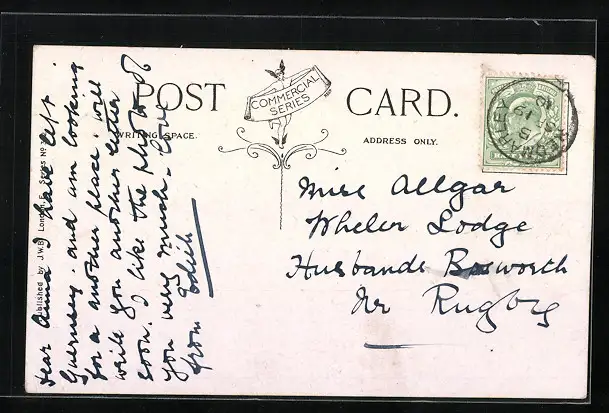 POST CARD.
COMMERCIAL
SERIES
WRITING SPACE.
ADDRESS ONLY.
Published by J.W.B. London, E. Series No
Dear Anna I have left
Guernsey. and am looking
for a another place. will
write you another letter
soon. I like the photo of
you very much. Love
from Edith
Miss Allgar
Wheler Lodge
Husbands Bosworth
Nr Rugby